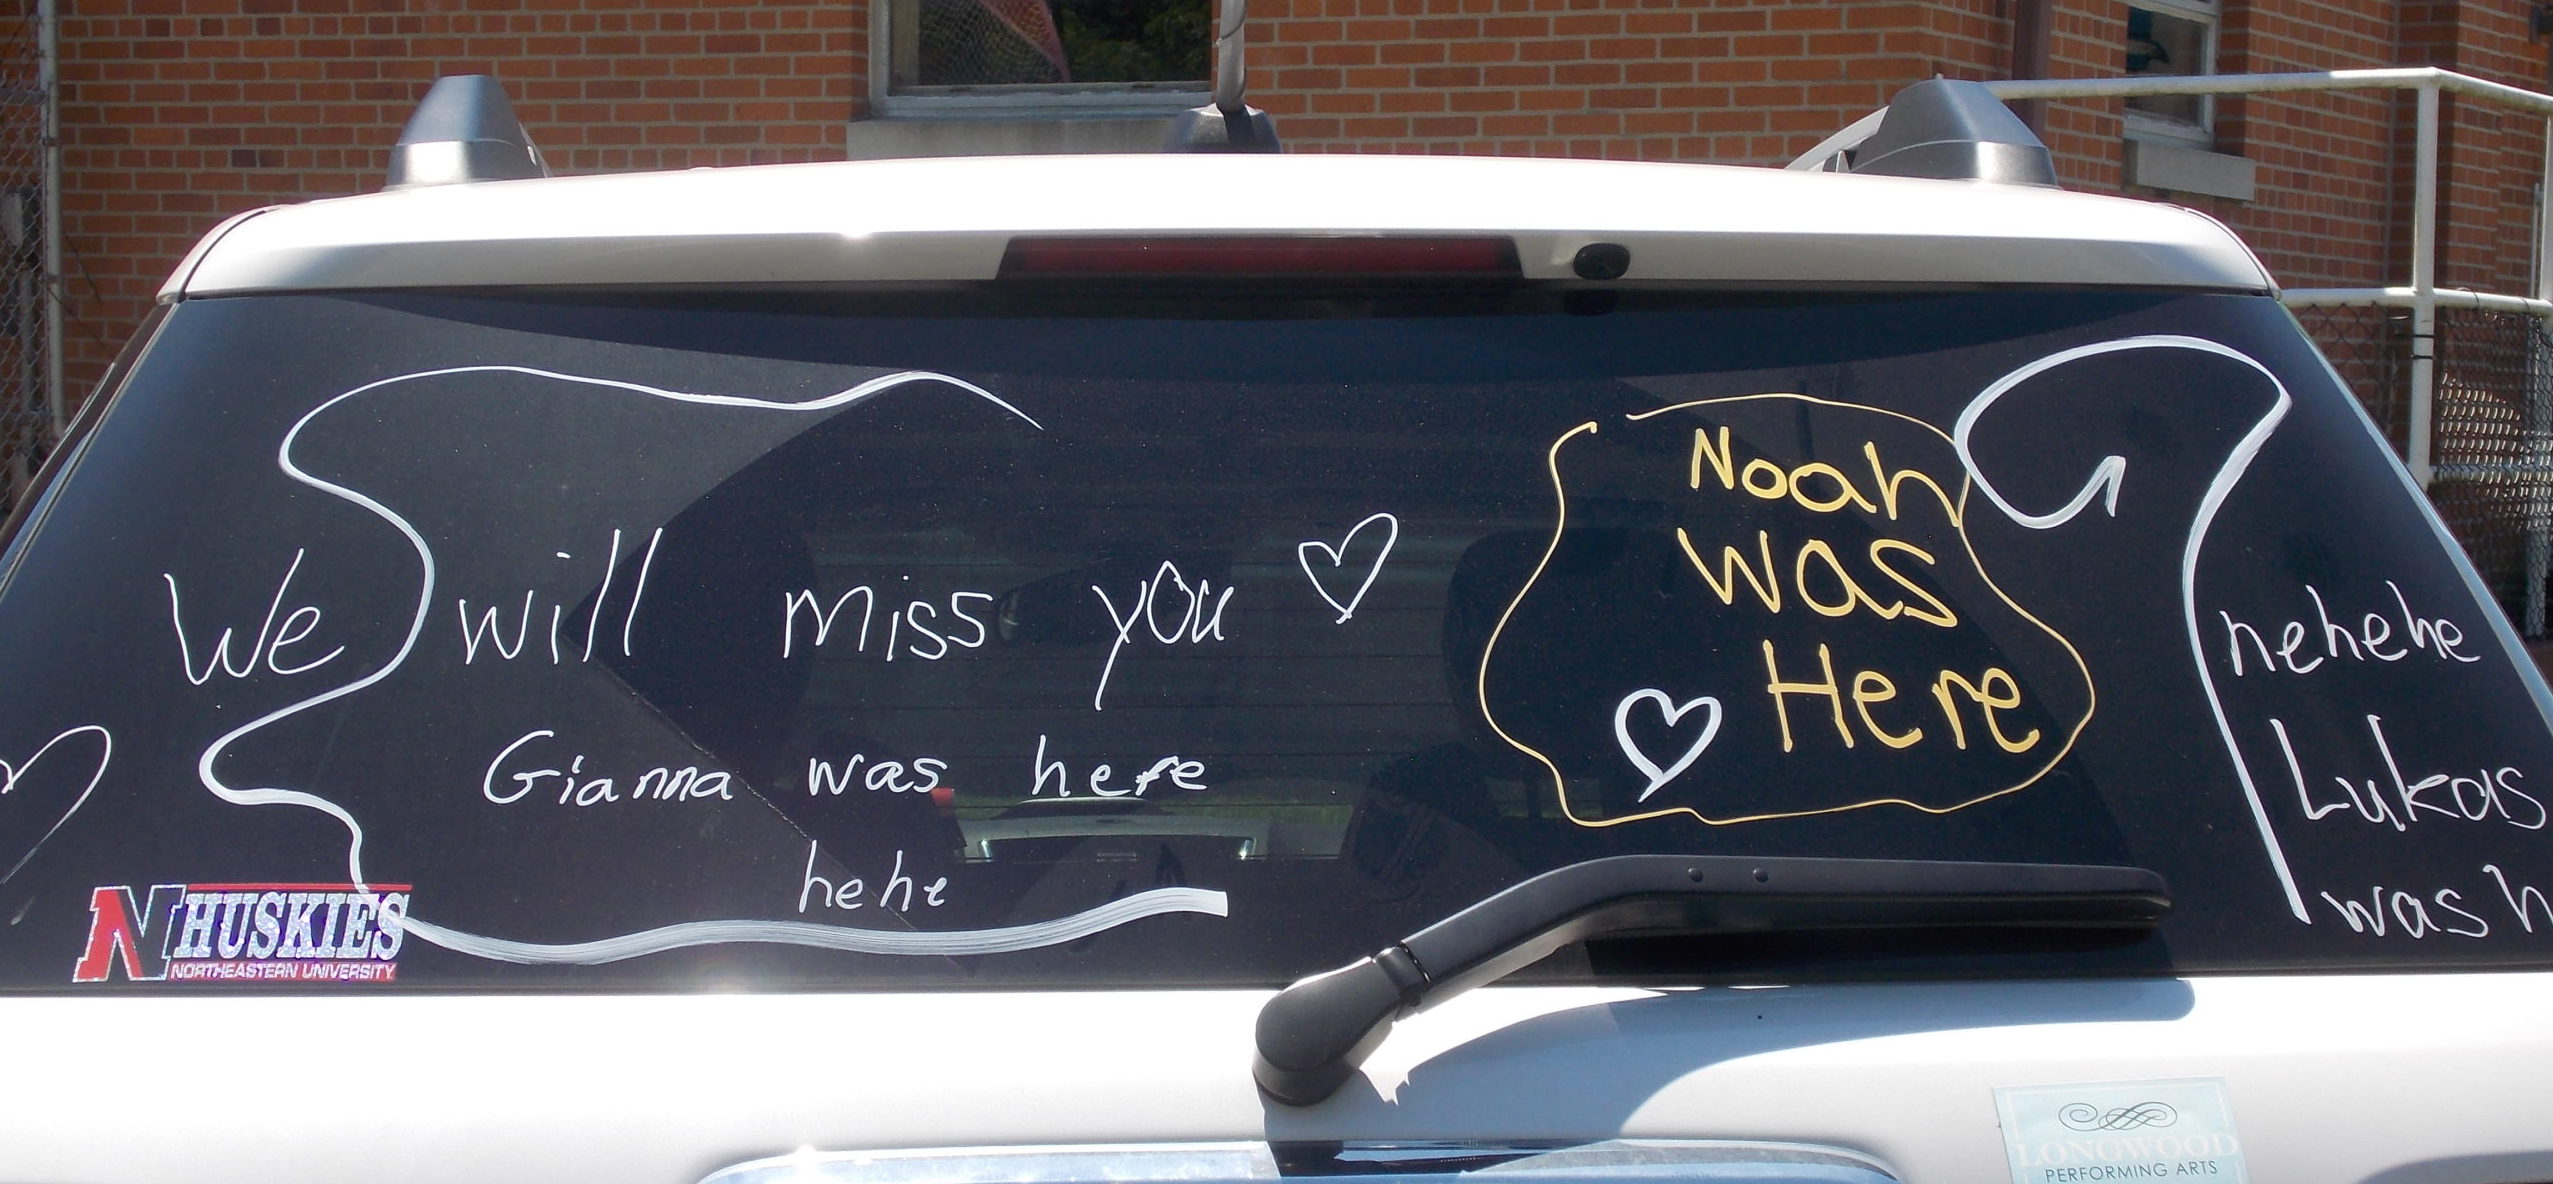 We will miss you
Gianna was here
hehe
Noah
was
Here
hehehe
Lukas
was h
N HUSKIES
NORTHEASTERN UNIVERSITY
LONGWOOD
PERFORMING ARTS